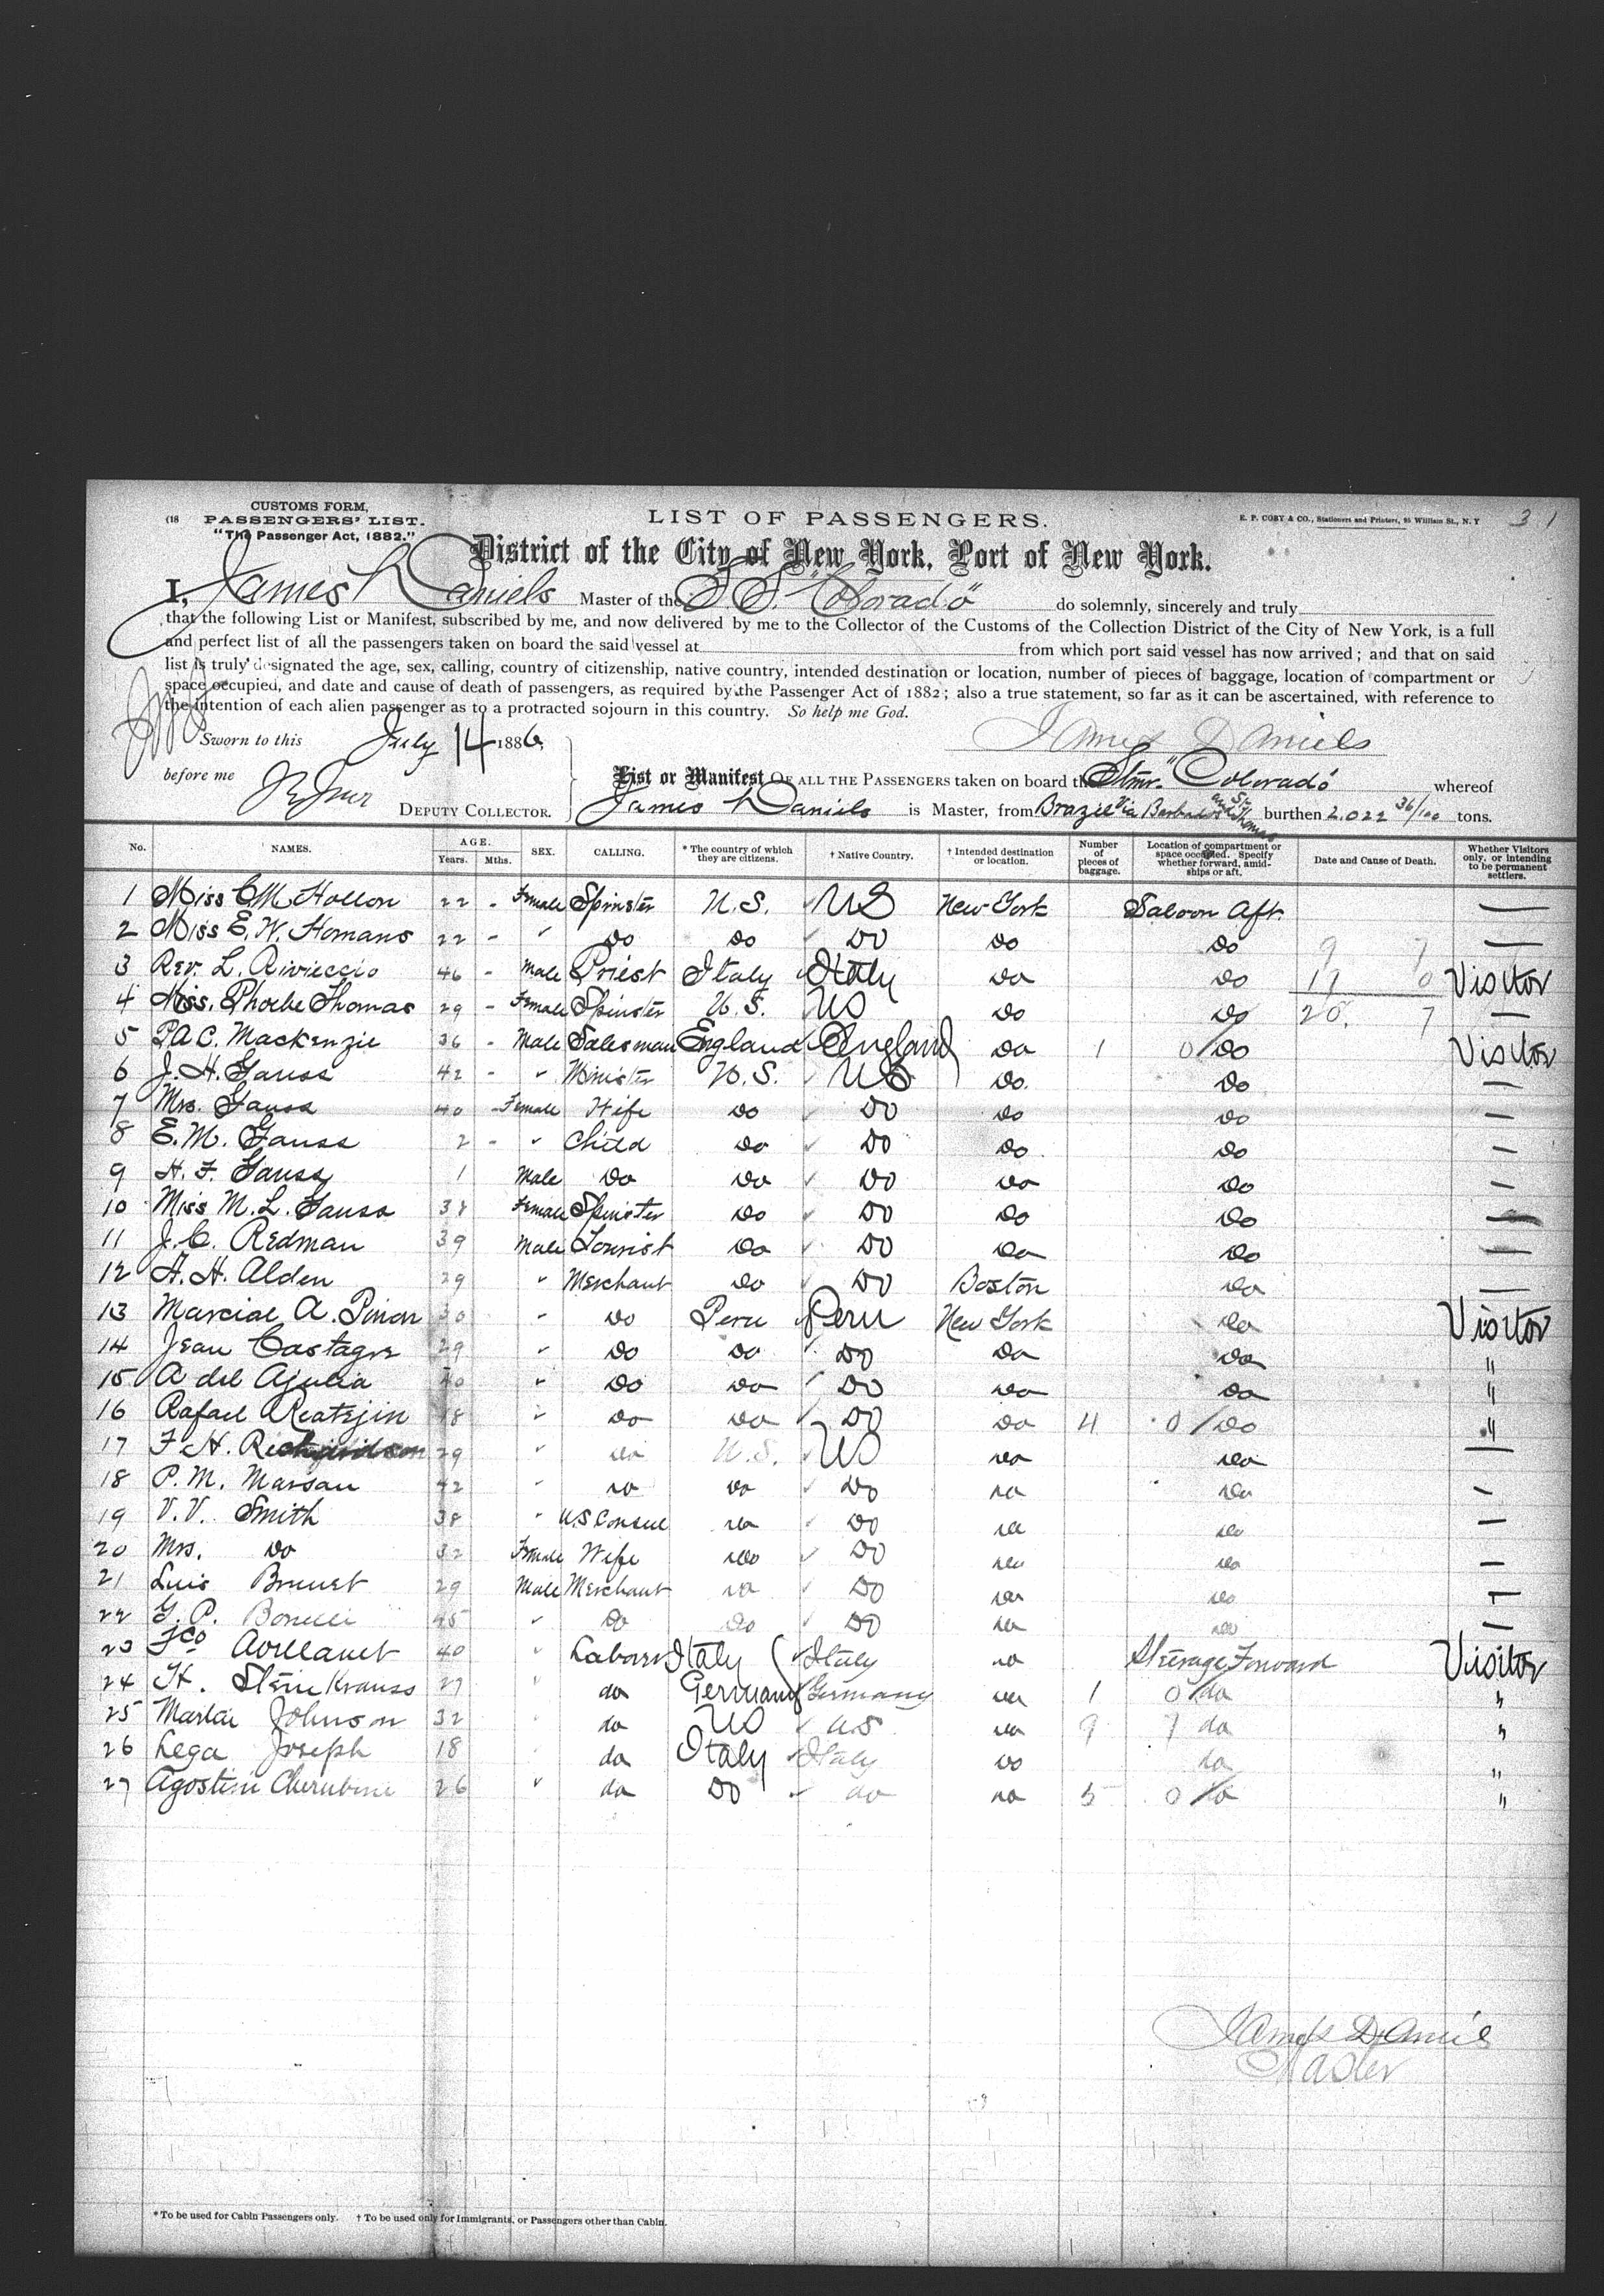 CUSTOMS FORM,
(18 PASSENGERS' LIST.
"The Passenger Act, 1882."
LIST OF PASSENGERS.
E. P. COBY & CO., Stationers and Printers, 95 William St., N.Y
3 1
District of the City of New York, Port of New York.
I, James Daniels Master of the S.S. "Colorado" do solemnly, sincerely and truly
that the following List or Manifest, subscribed by me, and now delivered by me to the Collector of the Customs of the Collection District of the City of New York, is a full
and perfect list of all the passengers taken on board the said vessel at from which port said vessel has now arrived; and that on said
list is truly designated the age, sex, calling, country of citizenship, native country, intended destination or location, number of pieces of baggage, location of compartment or
space occupied, and date and cause of death of passengers, as required by the Passenger Act of 1882; also a true statement, so far as it can be ascertained, with reference to
the intention of each alien passenger as to a protracted sojourn in this country. So help me God.
Sworn to this July 14 1886
James Daniels
before me
DEPUTY COLLECTOR.
List or Manifest OF ALL THE PASSENGERS taken on board the Stmr. "Colorado" whereof
James Daniels is Master, from Brazil via Barbados and St Thomas burthen 2.022 36/100 tons.
No. NAMES. AGE. Years. Mths. SEX. CALLING. * The country of which they are citizens. † Native Country. † Intended destination or location. Number of pieces of baggage. Location of compartment or space occupied. Specify whether forward, amidships or aft. Date and Cause of Death. Whether Visitors only, or intending to be permanent settlers.
1 Miss C M Hollon 22 - Female Spinster U.S. US New York Saloon Aft. —
2 Miss E. W. Homans 22 - " Do Do Do Do Do 9 7 —
3 Rev. L. Rivieccio 46 - Male Priest Italy Italy Do Do 11 0 Visitor
4 Miss. Phoebe Thomas 29 - Female Spinster U.S. US Do Do 20. 7 —
5 P.A.C. Mackenzie 36 - Male Salesman England England Do 1 0/Do Visitor
6 J. H. Gauss 42 - " Minister U.S. US Do. Do —
7 Mrs. Gauss 40 - Female Wife Do Do Do Do —
8 E. M. Gauss 2 - " Child Do Do Do Do —
9 H. F. Gauss 1 Male Do Do Do Do Do —
10 Miss M. L. Gauss 38 Female Spinster Do Do Do Do —
11 J. C. Redman 39 Male Tourist Do Do Do Do —
12 A. H. Alden 29 " Merchant Do Do Boston Do —
13 Marcial A. Pinon 30 " Do Peru Peru New York Do Visitor
14 Jean Castagne 29 " Do Do Do Do Do "
15 A del Ajulia 40 " Do Do Do Do Do "
16 Rafael " Do Do Do Do 4 0/Do "
17 F H. 29 " Do U.S. US Do Do —
18 P. M. Marsau 42 " Do Do Do Do Do —
19 V. V. Smith 38 " U.S Consul Do Do Do Do —
20 Mrs. Do 32 Female Wife Do Do Do Do —
21 Luis Brunet 29 Male Merchant Do Do Do Do —
22 G. P. Bonelli 45 " Do Do Do Do Do —
23 Fco Avellanet 40 " Laborer Italy Italy Do Steerage Forward Visitor
24 H. Steinkrauss 27 " do Germany Germany Do 1 0/do "
25 Johnson 32 " do US U.S Do 9 7 do "
26 Lega Joseph 18 " do Italy Italy Do do "
27 Agostini Cherubini 26 " do Do do Do 5 0/do "
James Daniels
Master
* To be used for Cabin Passengers only. † To be used only for Immigrants, or Passengers other than Cabin.